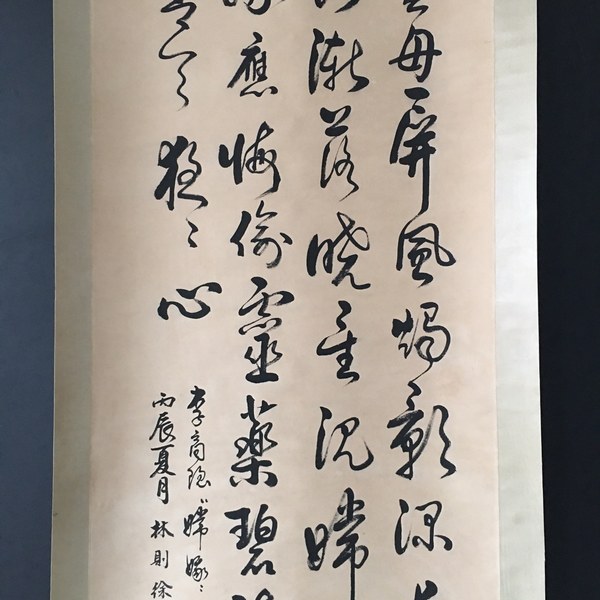 母屏風燭影深
漸落曉星沈嫦
應悔偷靈藥碧
天夜〻心
李商隱〝嫦娥〻
丙辰夏月 林則徐